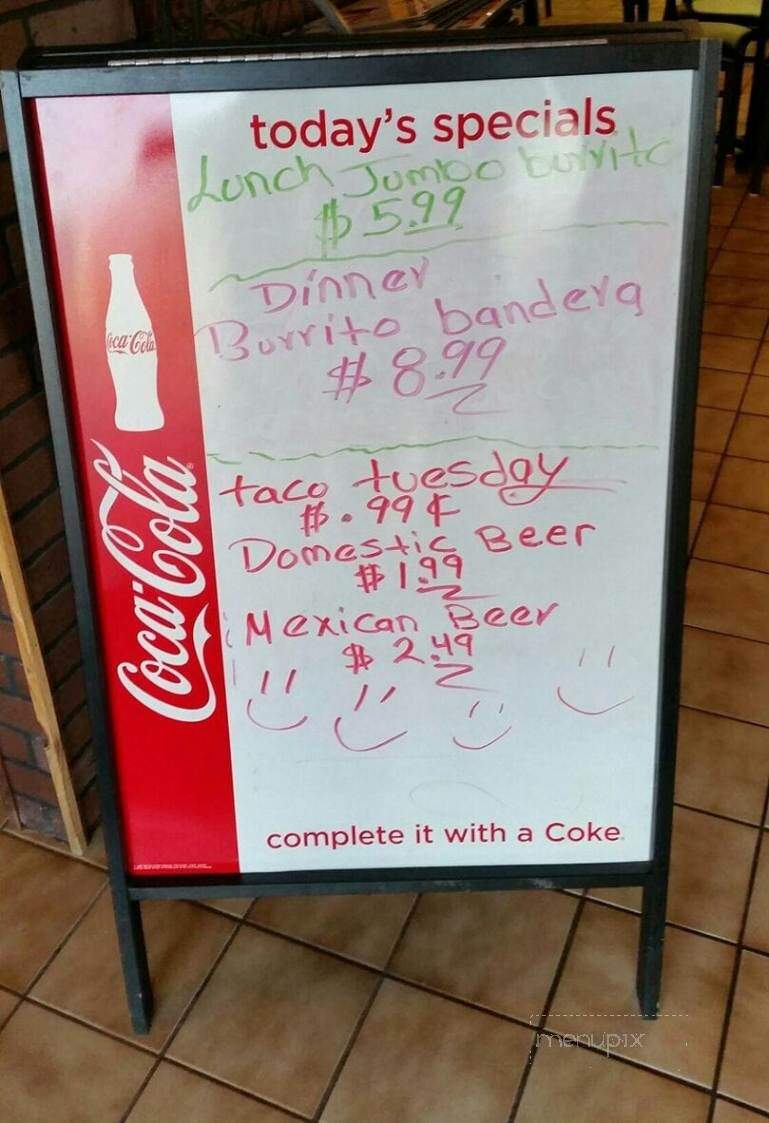 today's specials
Lunch Jumbo burrito
$5.99
Dinner
Burrito bandera
$8.99
taco tuesday
$.99¢
Domestic Beer
$1.99
Mexican Beer
$2.49
Coca-Cola
Coca-Cola
complete it with a Coke.
menupix